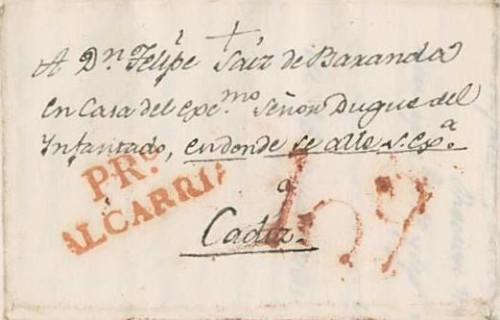 +
A Dn. Felipe Saiz de Baranda
en Casa del exc.mo Señor Duque del
Infantado, en donde se alle S. Exa.
PR.o
ALCARRIA
a
Cadiz.